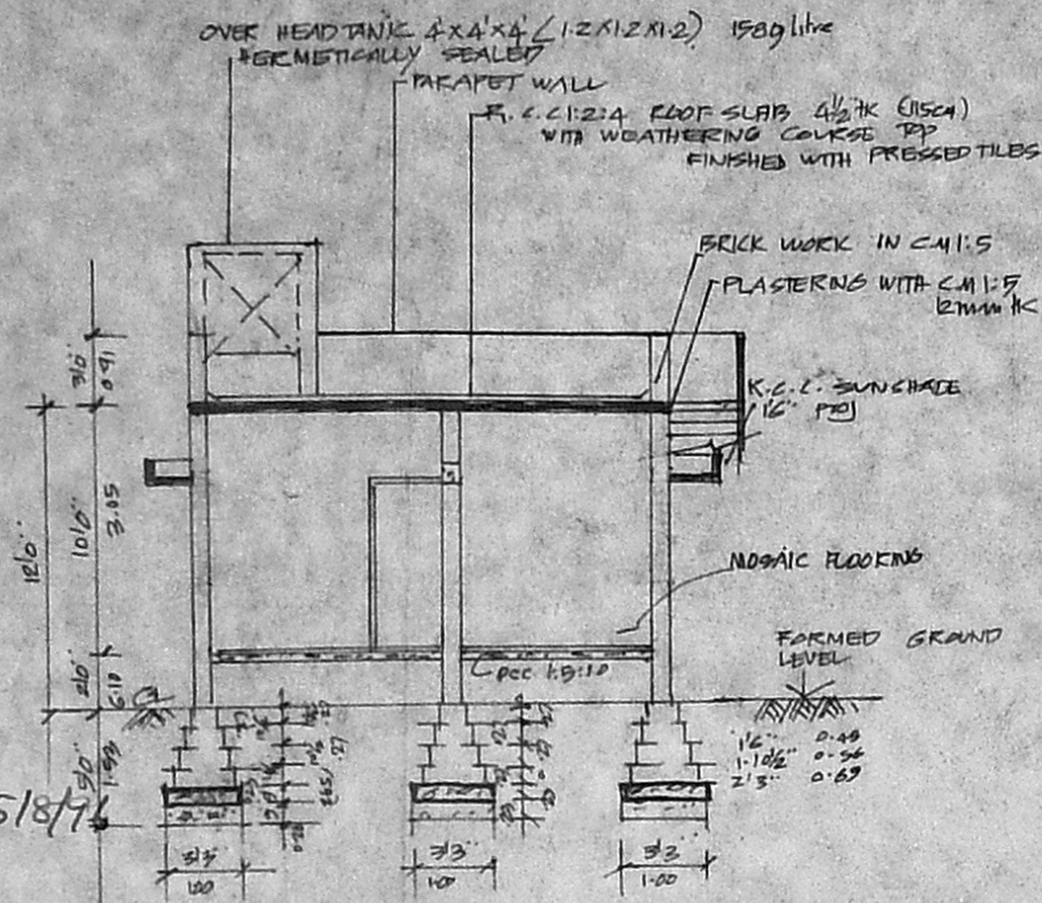 OVER HEAD TANK 4'x4'x4' (1.2x1.2x1.2) 1589 litre
HERMETICALLY SEALED
PARAPET WALL
R.C.C 1:2:4 ROOF SLAB 4½" TK
WITH WEATHERING COURSE TOP
FINISHED WITH PRESSED TILES
BRICK WORK IN CM 1:5
PLASTERING WITH CM 1:5
12mm TK
3'0"
0.91
R.C.C. SUNSHADE
1'6" PROJ
12'0"
10'0"
3.05
MOSAIC FLOORING
FORMED GROUND
LEVEL
PCC 1:5:10
2'0"
5'0"
1'6" 0.45
1'-10½" 0.56
2'3" 0.69
5/8/96
3'3"
1.00
3'3"
1.00
3'3"
1.00